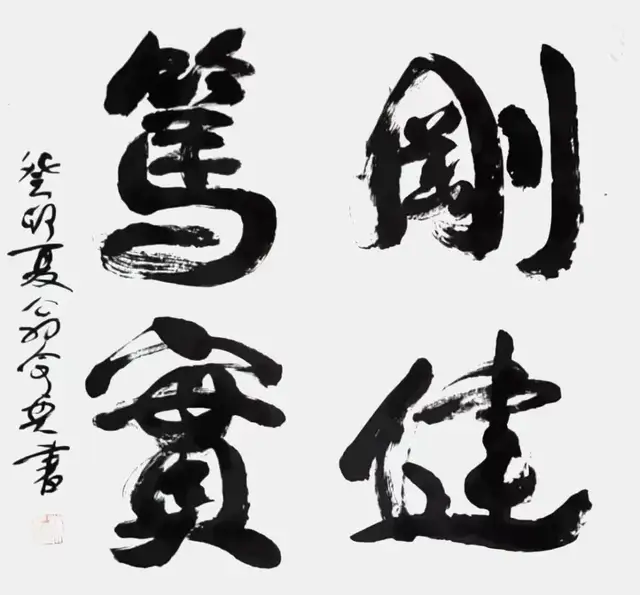 剛健
篤實
癸卯夏翁書